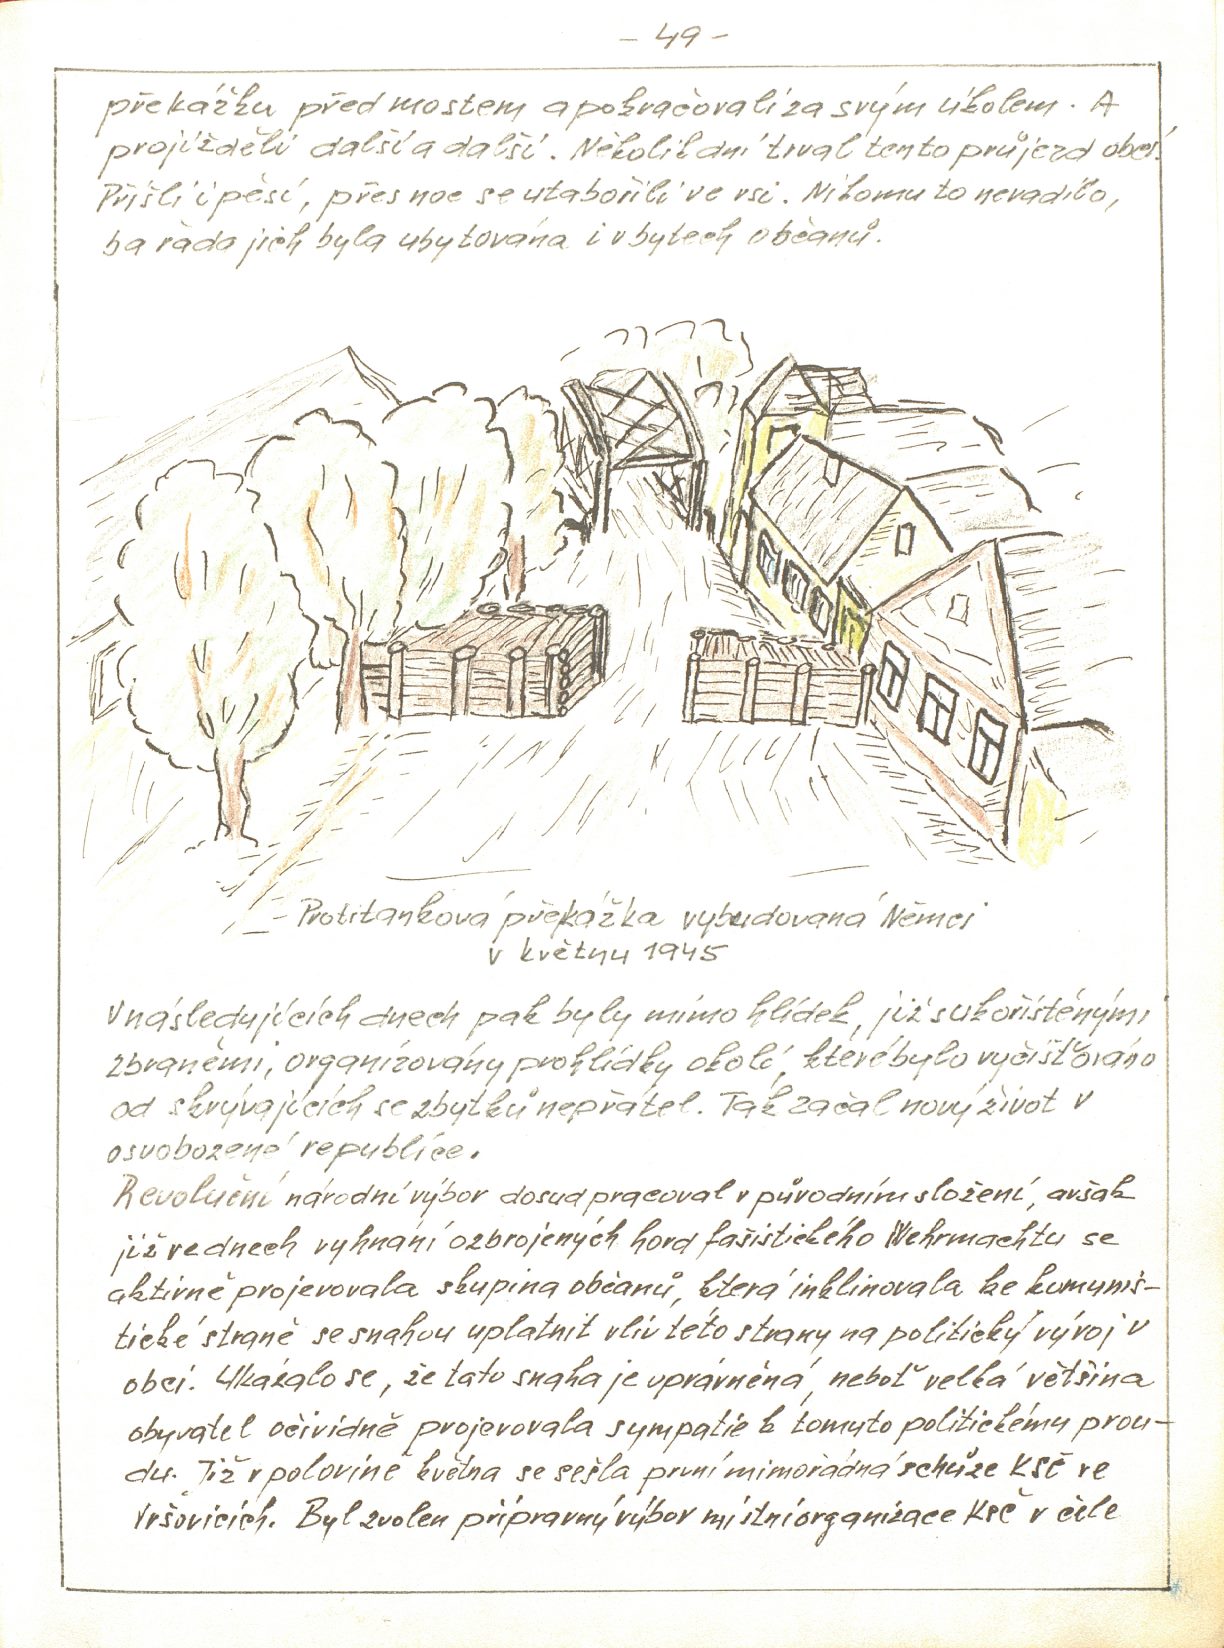 - 49 -
překážku před mostem a pokračovali za svým úkolem. A
projížděli další a další. Několik dní trval tento průjezd obcí.
Přišli i pěší, přes noc se utabořili ve vsi. Nikomu to nevadilo,
ba řada jich byla ubytována i v bytech občanů.
- Protitanková překážka vybudovaná Němci
v květnu 1945
V následujících dnech pak byly mimo hlídek, již s ukořistěnými
zbraněmi, organizovány prohlídky okolí, které bylo vyčišťováno
od skrývajících se zbytků nepřátel. Tak začal nový život v
osvobozené republice.
Revoluční národní výbor dosud pracoval v původním složení, avšak
již ve dnech vyhnání ozbrojených hord fašistického Wehrmachtu se
aktivně projevovala skupina občanů, která inklinovala ke komunis-
tické straně se snahou uplatnit vliv této strany na politický vývoj v
obci. Ukázalo se, že tato snaha je oprávněná, neboť velká většina
obyvatel očividně projevovala sympatie k tomuto politickému prou-
du. Již v polovině května se sešla první mimořádná schůze KSČ ve
Vršovicích. Byl zvolen přípravný výbor místní organizace KSČ v čele